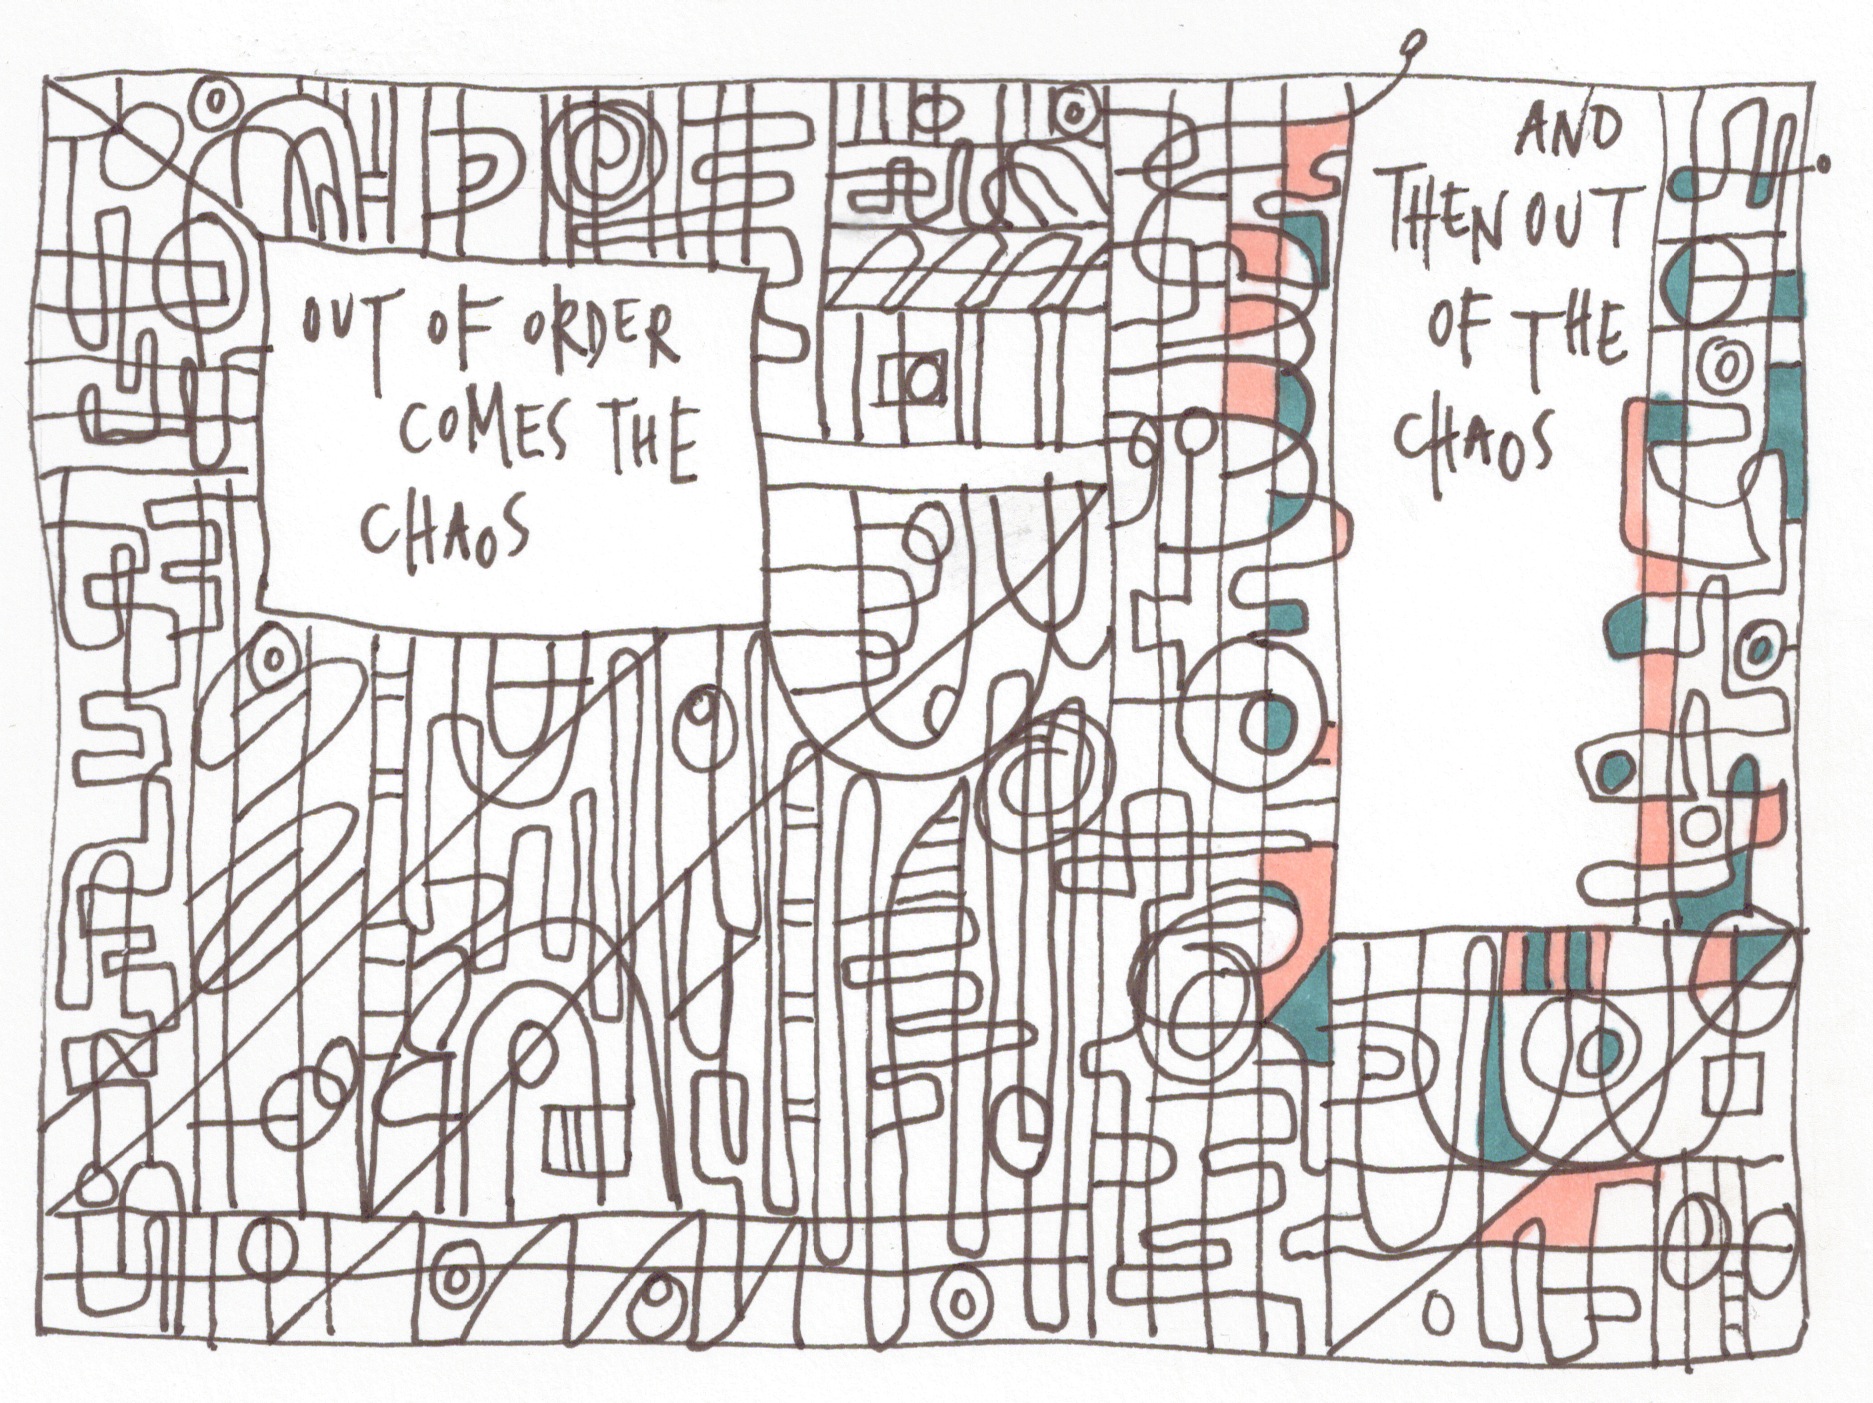 OUT OF ORDER
COMES THE
CHAOS
AND
THEN OUT
OF THE
CHAOS